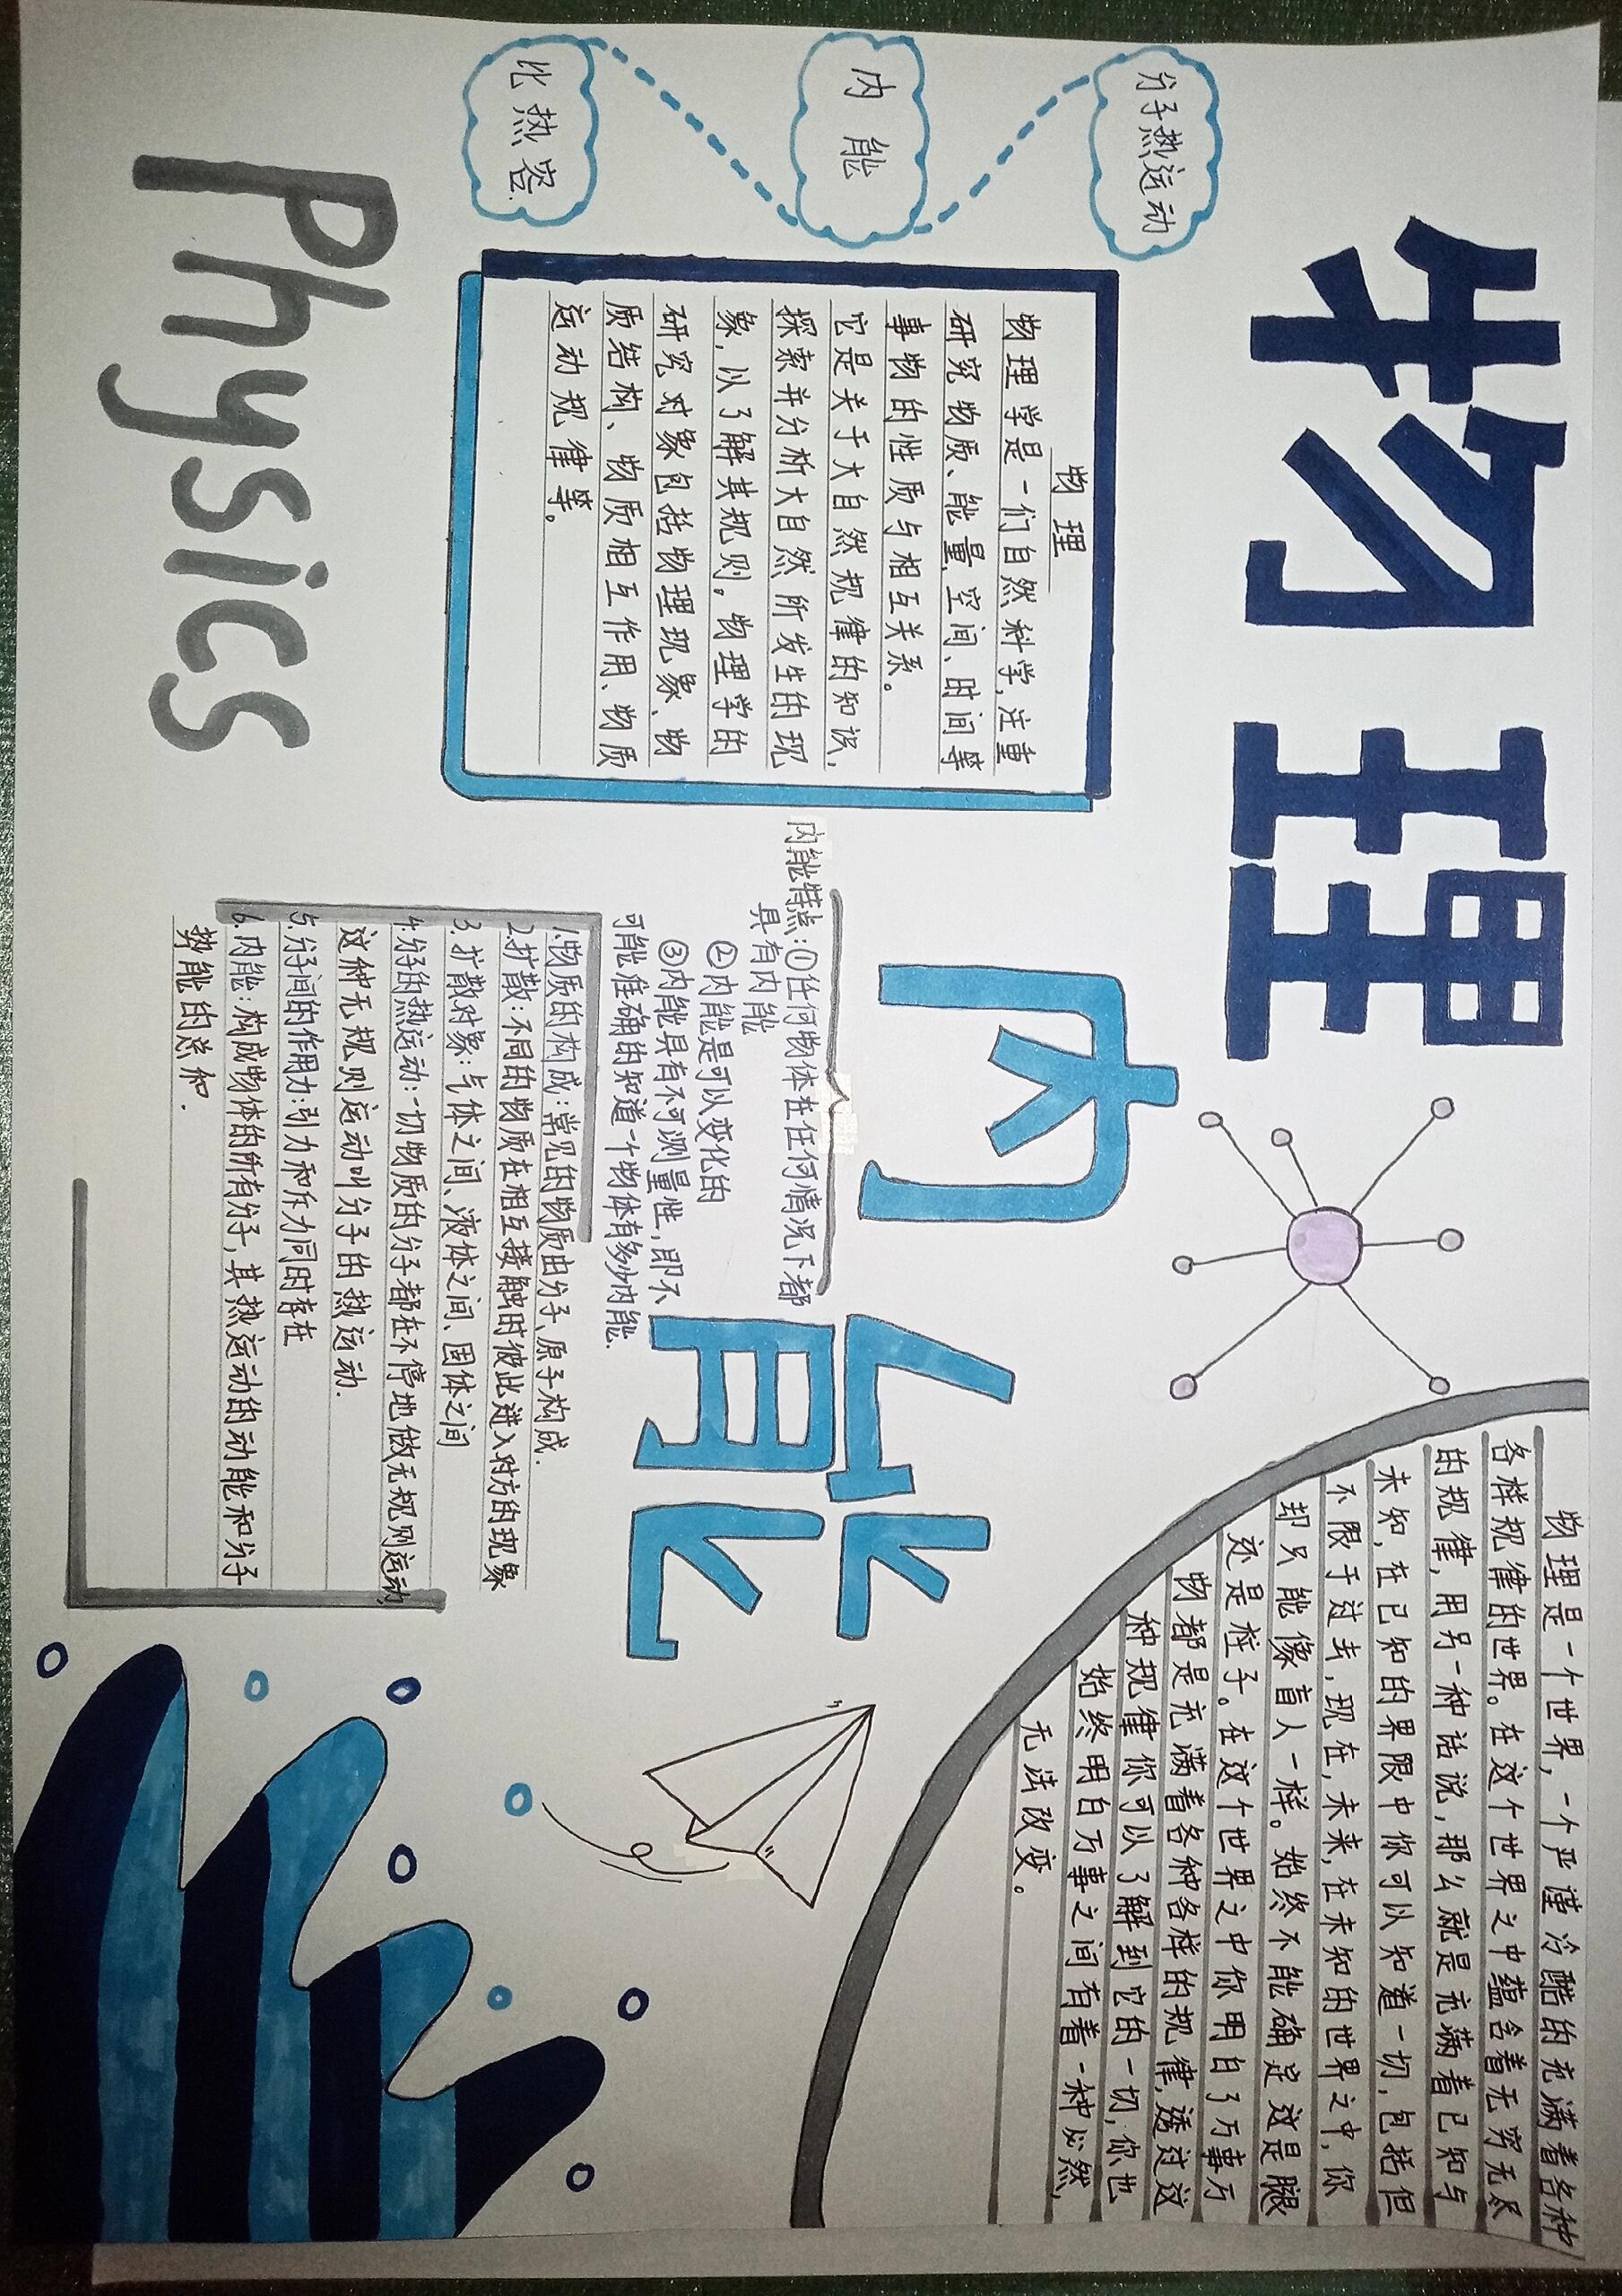 物理
分子热运动
内能
比热容.
Physics
物理
物理学是一们自然科学,注重
研究物质、能量,空间、时间等
事物的性质与相互关系。
它是关于大自然规律的知识,
探索并分析大自然所发生的现
象,以了解其规则。物理学的
研究对象包括物理现象、物
质结构、物质相互作用、物质
运动规律等。
内能
内能特点:①任何物体在任何情况下都
具有内能
②内能是可以变化的
③内能具有不可测量性,即不
可能准确的知道一个物体有多少内能.
1.物质的构成:常见的物质由分子、原子构成.
2.扩散:不同的物质在相互接触时彼此进入对方的现象
3.扩散对象:气体之间、液体之间、固体之间
4.分子的热运动:一切物质的分子都在不停地做无规则运动,
这种无规则运动叫分子的热运动.
5.分子间的作用力:引力和斥力同时存在
6.内能:构成物体的所有分子,其热运动的动能和分子
势能的总和.
物理是一个世界,一个严谨冷酷的充满着各种
各样规律的世界。在这个世界之中蕴含着无穷无尽
的规律,用另一种话说,那么就是充满着已知与
未知,在已知的界限中你可以知道一切,包括但
不限于过去,现在,未来,在未知的世界之中,你
却只能像盲人一样。始终不能确定这是腿
还是柱子。在这个世界之中你明白了万事万
物都是充满着各种各样的规律,透过这
种规律你可以了解到它的一切,你也
始终明白万事之间有着一种必然,
无法改变。